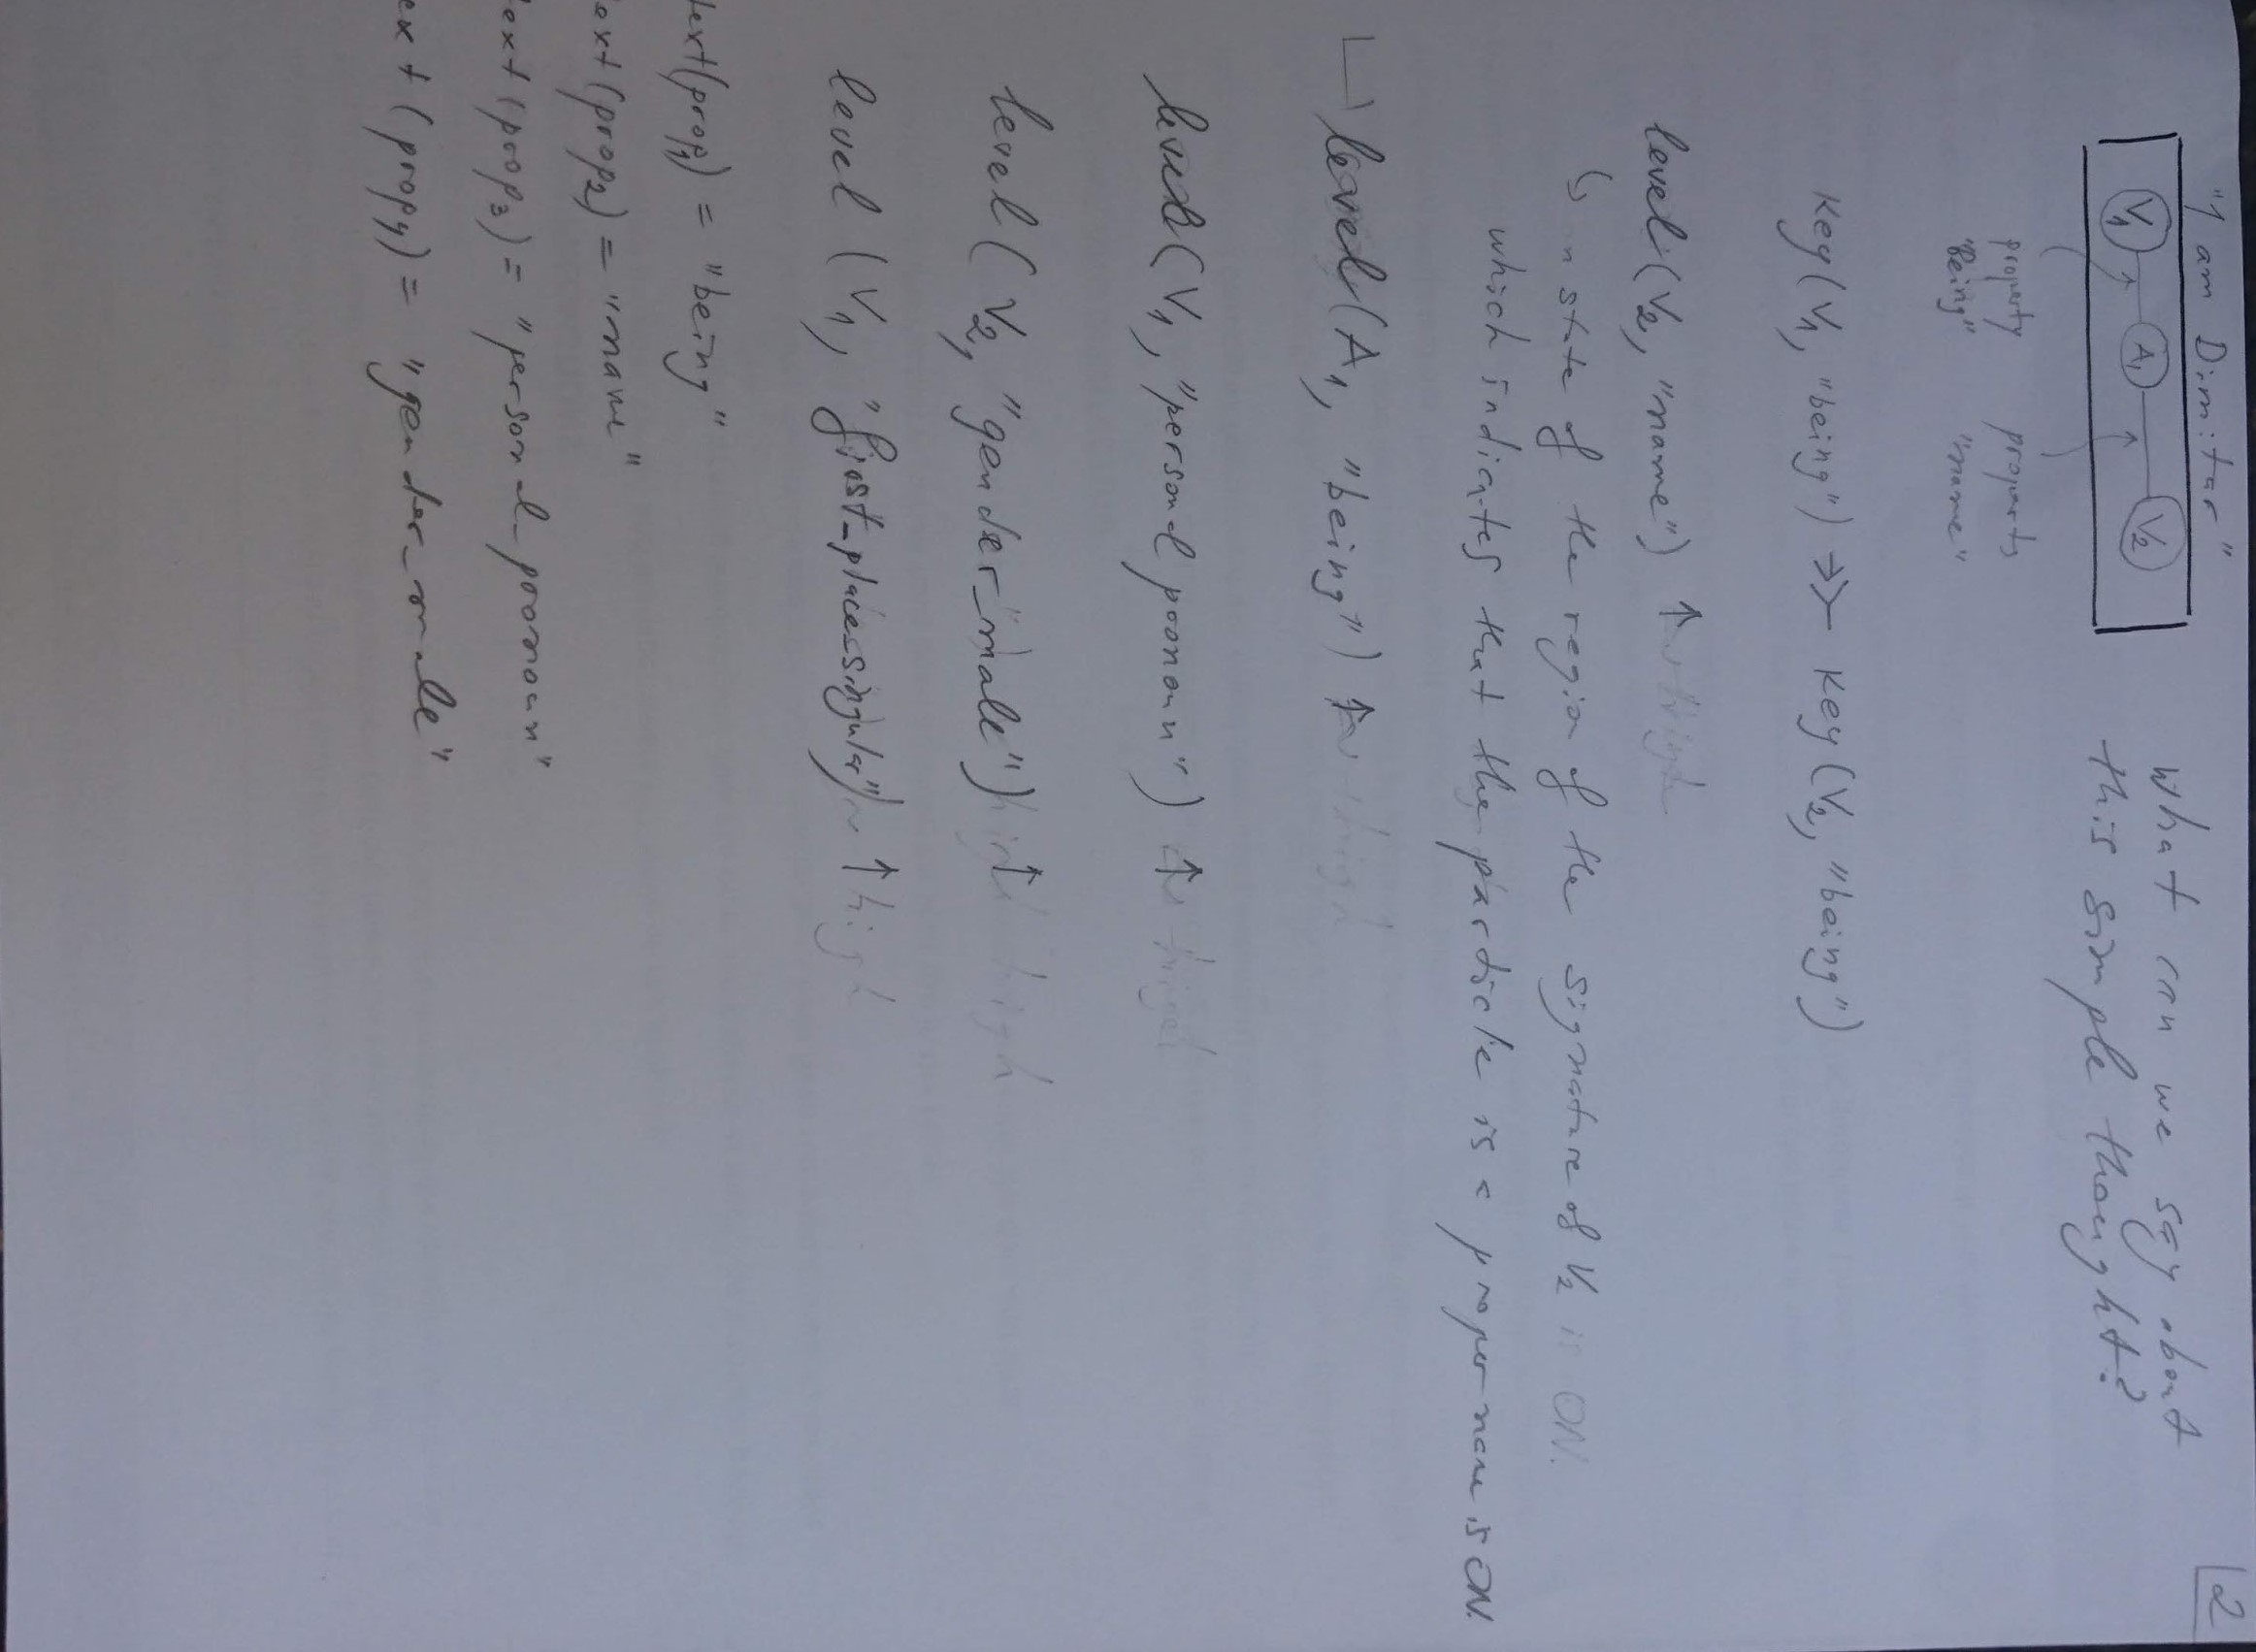 2
"I am Dimitar"
V1 A1 V2
What can we say about
this simple thought?
property property
"Being" "name"
Key(V1, "being") ⤚ Key(V2, "being")
level(V2, "name") ↑
↳ state of the region of the signature of V2 is ON.
which indicates that the particle is a proper name is ON.
level(A1, "being") ↑
level(V1, "personal pronoun") ↑
level(V2, "gender_male") ↑
level(V1, "first_place_singular") ↑ high
text(prop1) = "being"
ext(prop2) = "name"
ext(prop3) = "personal_pronoun"
ext(prop4) = "gender_male"